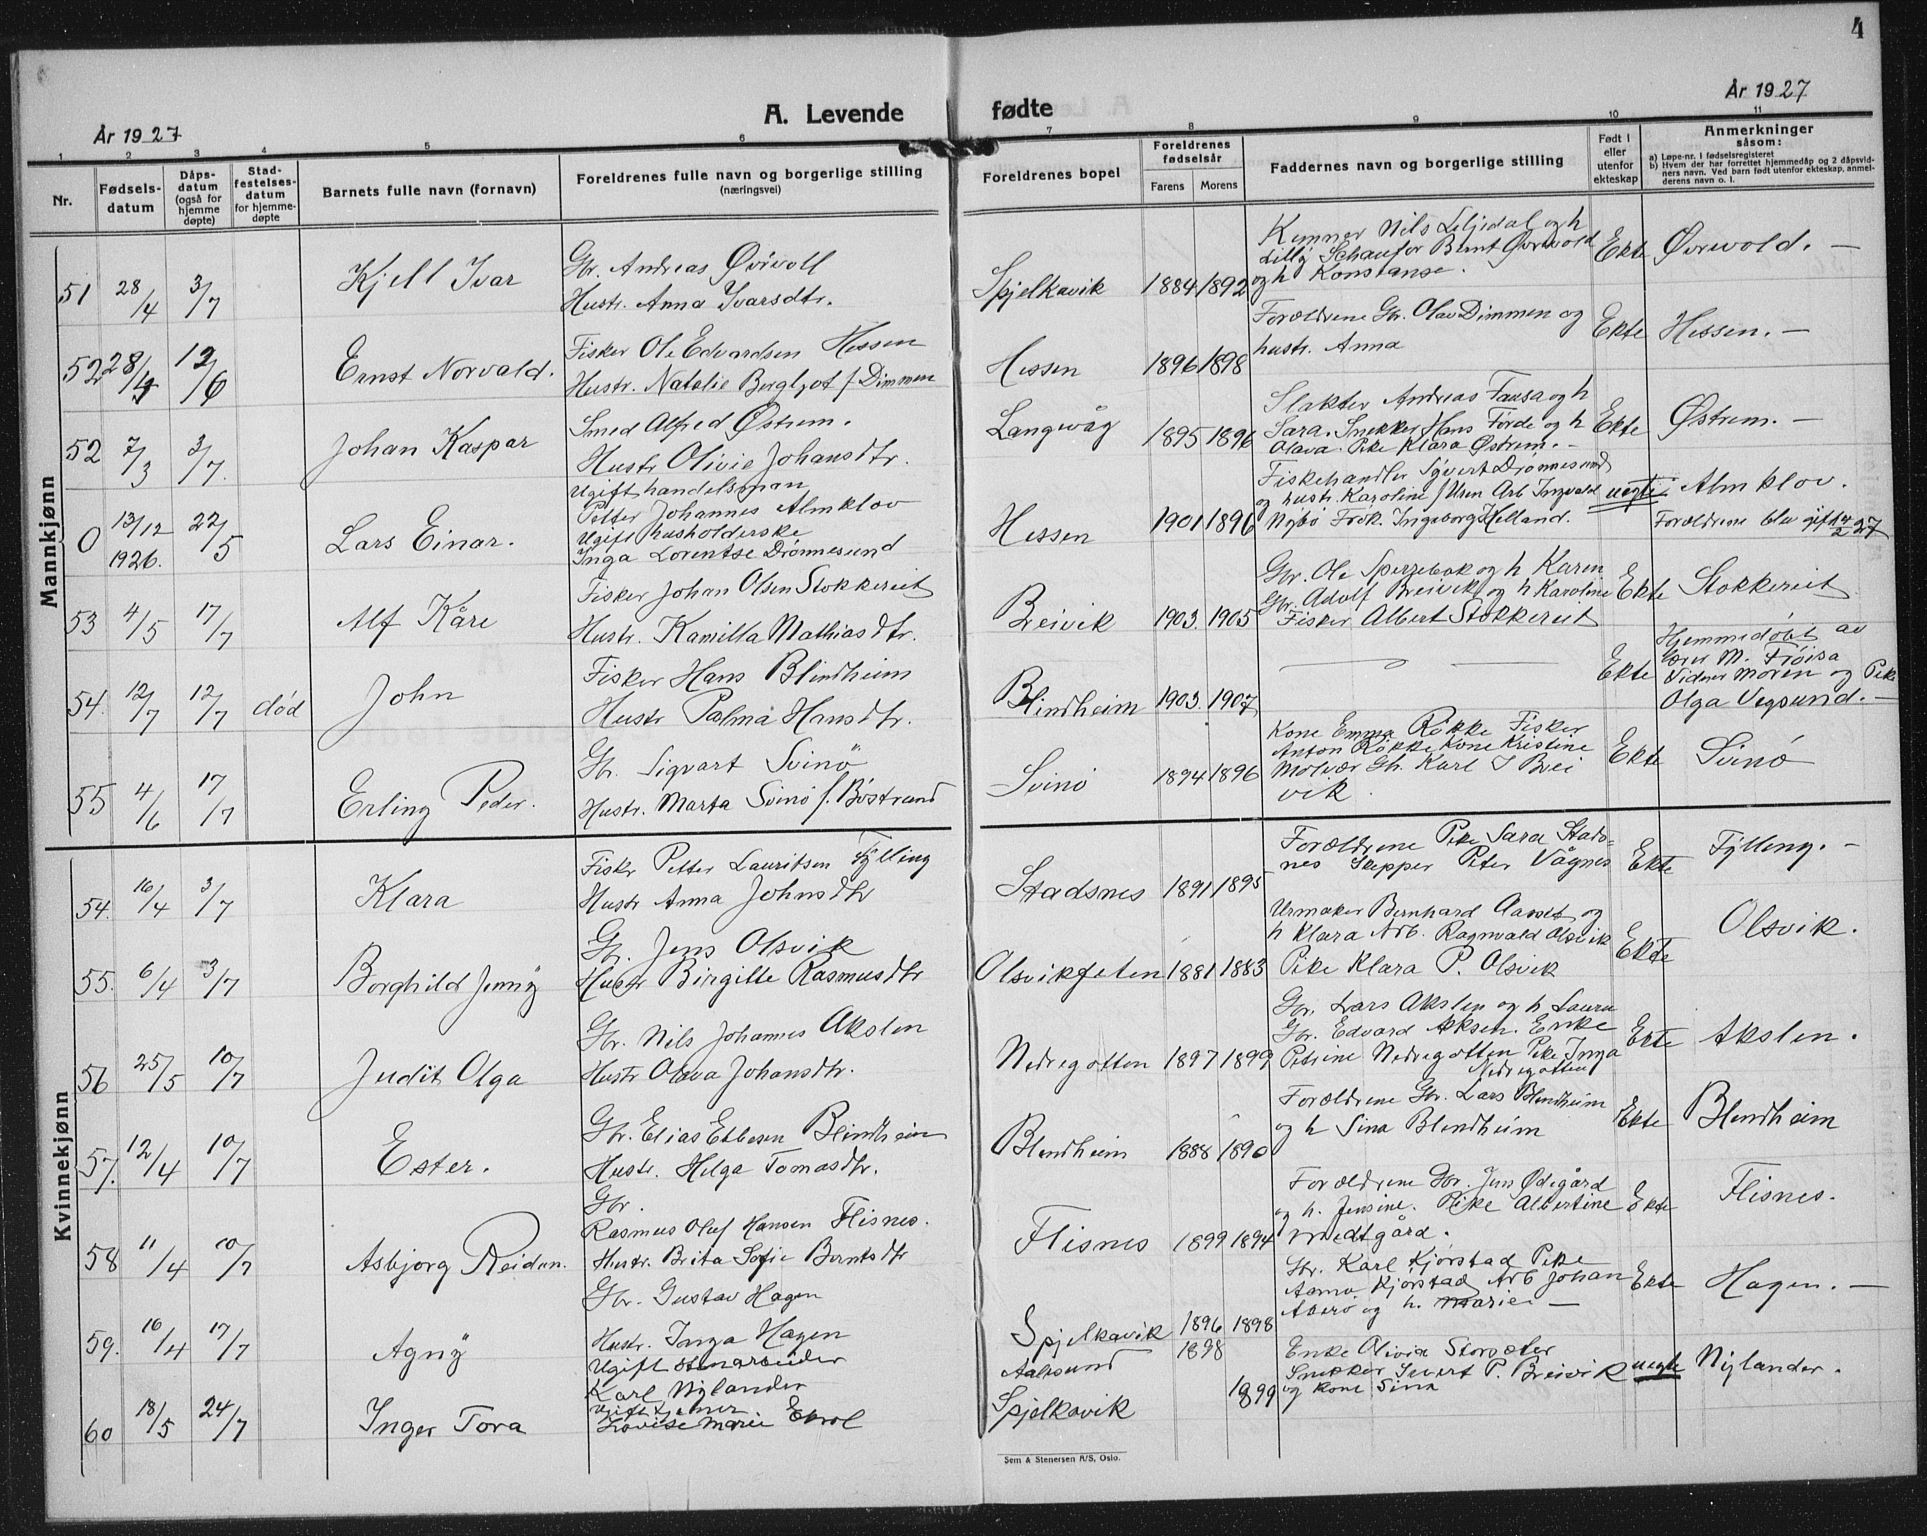 4
År 1927
A. Levende
fødte
År 1927
1 2 3 4 5 6 7 8 9 10 11
Nr.
Fødsels-
datum
Dåps-
datum
(også for
hjemme
døpte)
Stad-
festelses-
datum
for hjemme-
døpte
Barnets fulle navn (fornavn)
Foreldrenes fulle navn og borgerlige stilling
(næringsvei)
Foreldrenes bopel
Foreldrenes
fødselsår
Farens Morens
Faddernes navn og borgerlige stilling
Født i
eller
utenfor
ekteskap
Anmerkninger
såsom:
a) Løpe-nr. i fødselsregisteret
b) Hvem der har forrettet hjemmedåp og 2 dåpsvid-
ners navn. Ved barn født utenfor ekteskap, anmel-
derens navn o. l.
Mankjønn
51 28/4 3/7 Kjell Ivar
Gbr. Andreas Øvrvoll
Hustr. Anna Ivarsdtr.
Spjelkavik 1884 1892
Kemner Nils Liljedal og h
Lilly Schaufør Bernt Øvrvold
og h Konstanse.
Ekte Øvrvold. —
52 28/4 12/6 Ernst Norvald.
Fisker Ole Edvardsen Hessen
Hustr. Natalie Bergljot f Dimmen
Hessen 1896 1898
Forældrene Gbr. Olav Dimmen og
hustr. Anna
Ekte Hessen. —
52 7/3 3/7. Johan Kaspar
Smed Alfred Østrem.
Hustr Olivie Johansdtr.
Langevåg 1895 1896
Slakter Andreas Fausa og h
Sara. Snekker Hans Førde og h
Olava. Pike Klara Østrem. —
Ekte Østrem. —
0 13/12 1926. 22/5 Lars Einar.
Ugift handelsman
Petter Johannes Almklov
Ugift husholderske
Inga Lorentse Drønnesund
Hessen 1901 1896
Fiskehandler Syvert Drønnesund
og hustr. Karoline f Ulsen Arb Ingvald
Nybø Frøk. Ingeborg Helland.
uegte Almklov.
Forældrene blev gift 27
53 4/5 17/7 Alf Kåre
Fisker Johan Olsen Stokkereit
Hustr. Kamilla Mathiasdtr.
Breivik 1903. 1905
Gbr. Ole Sperrebok og h Karen
Gbr. Adolf Breivik og h Karoline
Fisker Albert Stokkereit
Ekte Stokkereit
54. 12/7 12/7 død John
Fisker Hans Blindheim
Hustr Palma Hansdtr.
Blindheim 1903. 1907
Ekte
Hjemmedøbt av
M. Frøisa
Vidner Moren og Pike
Olga Vegsund. —
55 4/6 17/7 Erling Peder.
Gbr. Sigvart Svinø
Hustr. Marta Svinø f. Bøstrand
Svinø 1894 1896
Kone Emma Røkke Fisker
Anton Røkke Kone Kristine
Molvær Gbr. Karl S Brei
vik.
Ekte Svinø
Kvinnekjønn
54. 16/4 3/7 Klara
Fisker Petter Lauritsen Fylling
Hustr Anna Johnsdtr
Stadsnes 1891 1895
Forældrene Pike Sara Stads
nes Skepper Peter Vågnes
Ekte Fylling. —
55. 6/4 3/7 Borghild Jenny
Gbr. Jens Olsvik
Hustr Birgitte Rasmusdtr
Olsvikfeten 1881 1883
Urmaker Bernhard og
h Klara Arb. Ragnvald Olsvik
Pike Klara P. Olsvik
Ekte Olsvik.
56 25/5 10/7 Judit Olga
Gbr. Nils Johannes Akslen
Hustr Olava Johansdtr.
Nedregotten 1897 1899
Gbr. Lars Akslen og h Laura
Gbr. Edvard Aksen. Enke
Petrine Nedregotten Pike Inga
Nedregotten
Ekte Akslen.
57. 12/4 10/7 Ester.
Gbr. Elias Ellesen Blindheim
Hustr. Helga Tomasdtr.
Blindheim 1888 1890
Forældrene Gbr. Lars Blindheim
og h Sina Blindheim
Ekte Blindheim
58 11/4 10/7 Asbjørg Reidun.
Gbr.
Rasmus Oluf Hansen Flisnes.
Hustr. Brita Sofie Berntsdtr
Flisnes 1899 1894
Forældrene Gbr. Jens Ødegård
og h. Jensine. Pike Albertine
Medtgård.
Ekte Flisnes.
59. 10/4 17/7 Agny
Gbr. Gustav Hagen
Hustr. Inga Hagen
Spjelkavik 1896 1898
Gbr. Karl Kjørstad Pike
Anna Kjørstad Arb Johan
Aberø og h. Marie —
Ekte Hagen. —
60 18/5 24/7 Inger Tora
Ugift stenarbeider
Karl Nylander
Ugift tjener
Lovise Marie Ekrol
Aalesund 1898
Spjelkavik 1899
Enke Olivia Storsæter
Snekker Sivert P. Breivik
og kone Sina
uegte Nylander.
Sem & Stenersen A/S, Oslo.